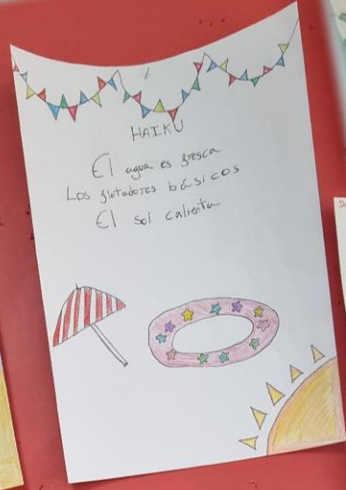 HAIKU
El agua es fresca
Los flotadores básicos
El sol calienta